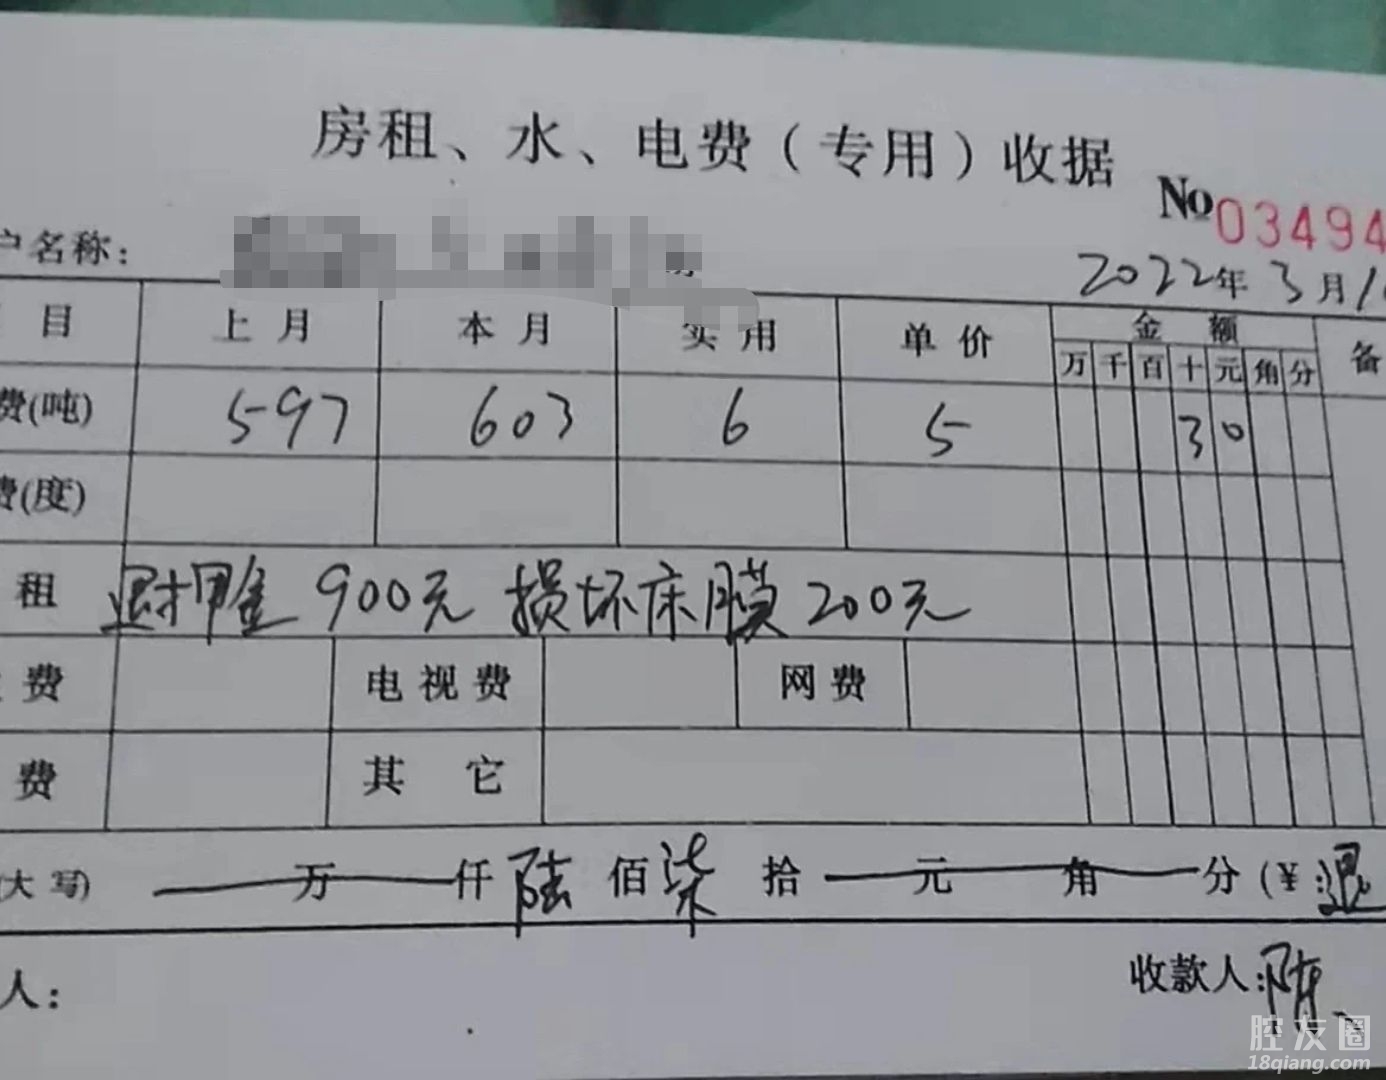 房租、水、电费（专用）收据
No 03494
户名称：
2022年3月1
目 上月 本月 实用 单价 金额 备
万 千 百 十 元 角 分
费(吨) 597 603 6 5 3 0
费(度)
租 退押金 900元 损坏床膜 200元
费 电视费 网费
费 其它
大写) 万 仟 陆 佰 柒 拾 元 角 分 (¥: 退
人： 收款人: 陈
腔友圈
18qiang.com